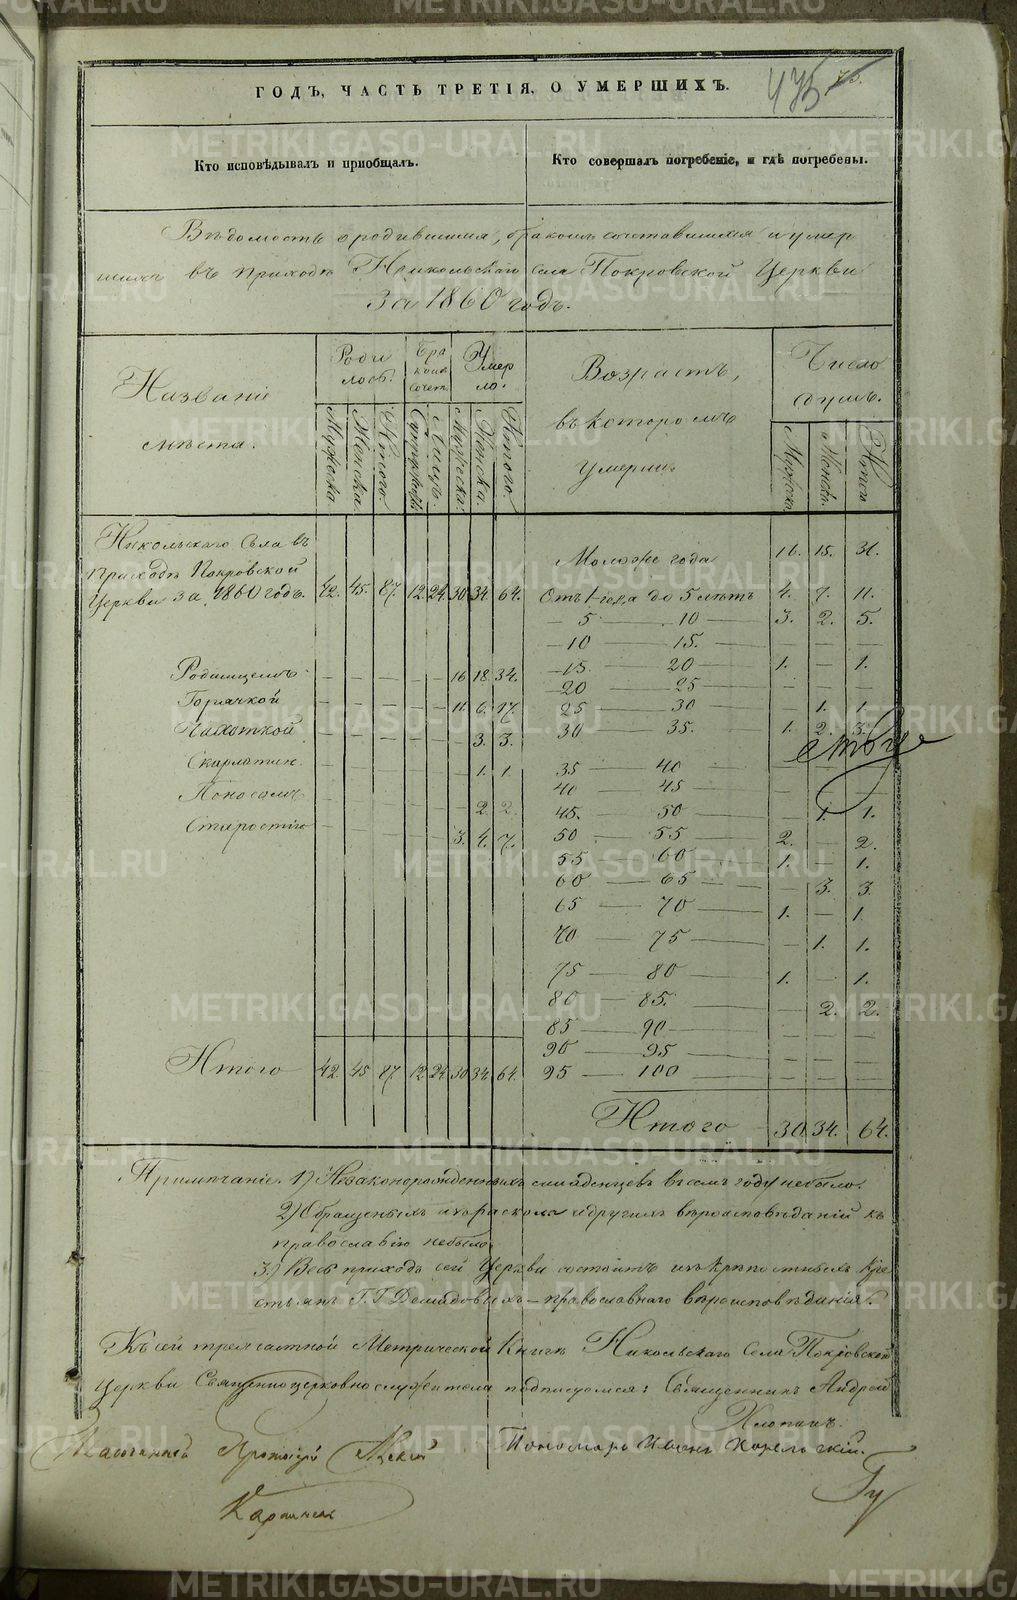 ГОДЪ, ЧАСТЬ ТРЕТІЯ, О УМЕРШИХЪ.
475
Кто исповѣдывалъ и пріобщалъ.
Кто совершалъ погребеніе, и гдѣ погребены.
Вѣдомость о родившихся, бракомъ сочетавшихся и умер
шихъ въ приходѣ Никольскаго села Покровской Церкви
За 1860 годъ.
Названіе
мѣста.
Роди
лось.
Бра
комъ
сочет.
Умер
ло.
Возрастъ,
въ которомъ
умерли.
Число
душъ.
Мужска. Женска. Итого. Супружест Лицъ. Мужска. Женска. Итого.
Мужска. Женска. Итого
Никольскаго Села въ
Приходѣ Покровской
Церкви за 1860 годъ. 42. 45. 87. 12. 24. 30. 34. 64.
Родимцемъ — — — — — 16 18. 34.
Горячкой — — — — — 11. 6. 17.
Чахоткой — — — — — 3. 3.
Скарлатин. — — — — — 1. 1.
Поносомъ — — — — — 2. 2.
Старостію — — — — — 3. 4. 7.
Итого 42. 45. 87. 12. 24. 30. 34. 64.
Моложе года 16. 15. 31.
Отъ 1 года до 5 лѣтъ 4. 7. 11.
— 5 — 10 — 3. 2. 5.
— 10 — 15. — — — —
— 15. — 20 — 1. — 1.
— 20 — 25 — — — —
25 — 30 — — 1. 1.
30 — 35. 1. 2. 3.
35 — 40
40 — 45 — — — —
45. — 50 — 1. 1.
50 — 55 2. — 2.
55 — 60 — 1. — 1.
60 — 65 — — 3. 3.
65 — 70 — 1. — 1.
70 — 75 — — 1. 1.
75 — 80 — 1. — 1.
80 — 85. — — 2. 2.
85 — 90 — — — —
90 — 95 — — — —
95 — 100 — — — —
Итого 30 34. 64.
Примѣчаніе. 1) Незаконорожденныхъ младенцевъ въ семъ году небыло.
2) Обращеныхъ изъ раскола и другихъ вѣроисповѣданій къ
православію небыло.
3.) Весь приходъ сей Церкви состоитъ изъ крѣпостныхъ кре
стьянъ Г.Г. Демидовыхъ — православнаго вѣроисповѣданія.
Къ сей тречастной Метрической Книгѣ Никольскаго Села Покровской
Церкви Священноцерковнослужители подписуемся: Священникъ Андрей
Пономарь Иванъ
METRIKI.GASO-URAL.RU